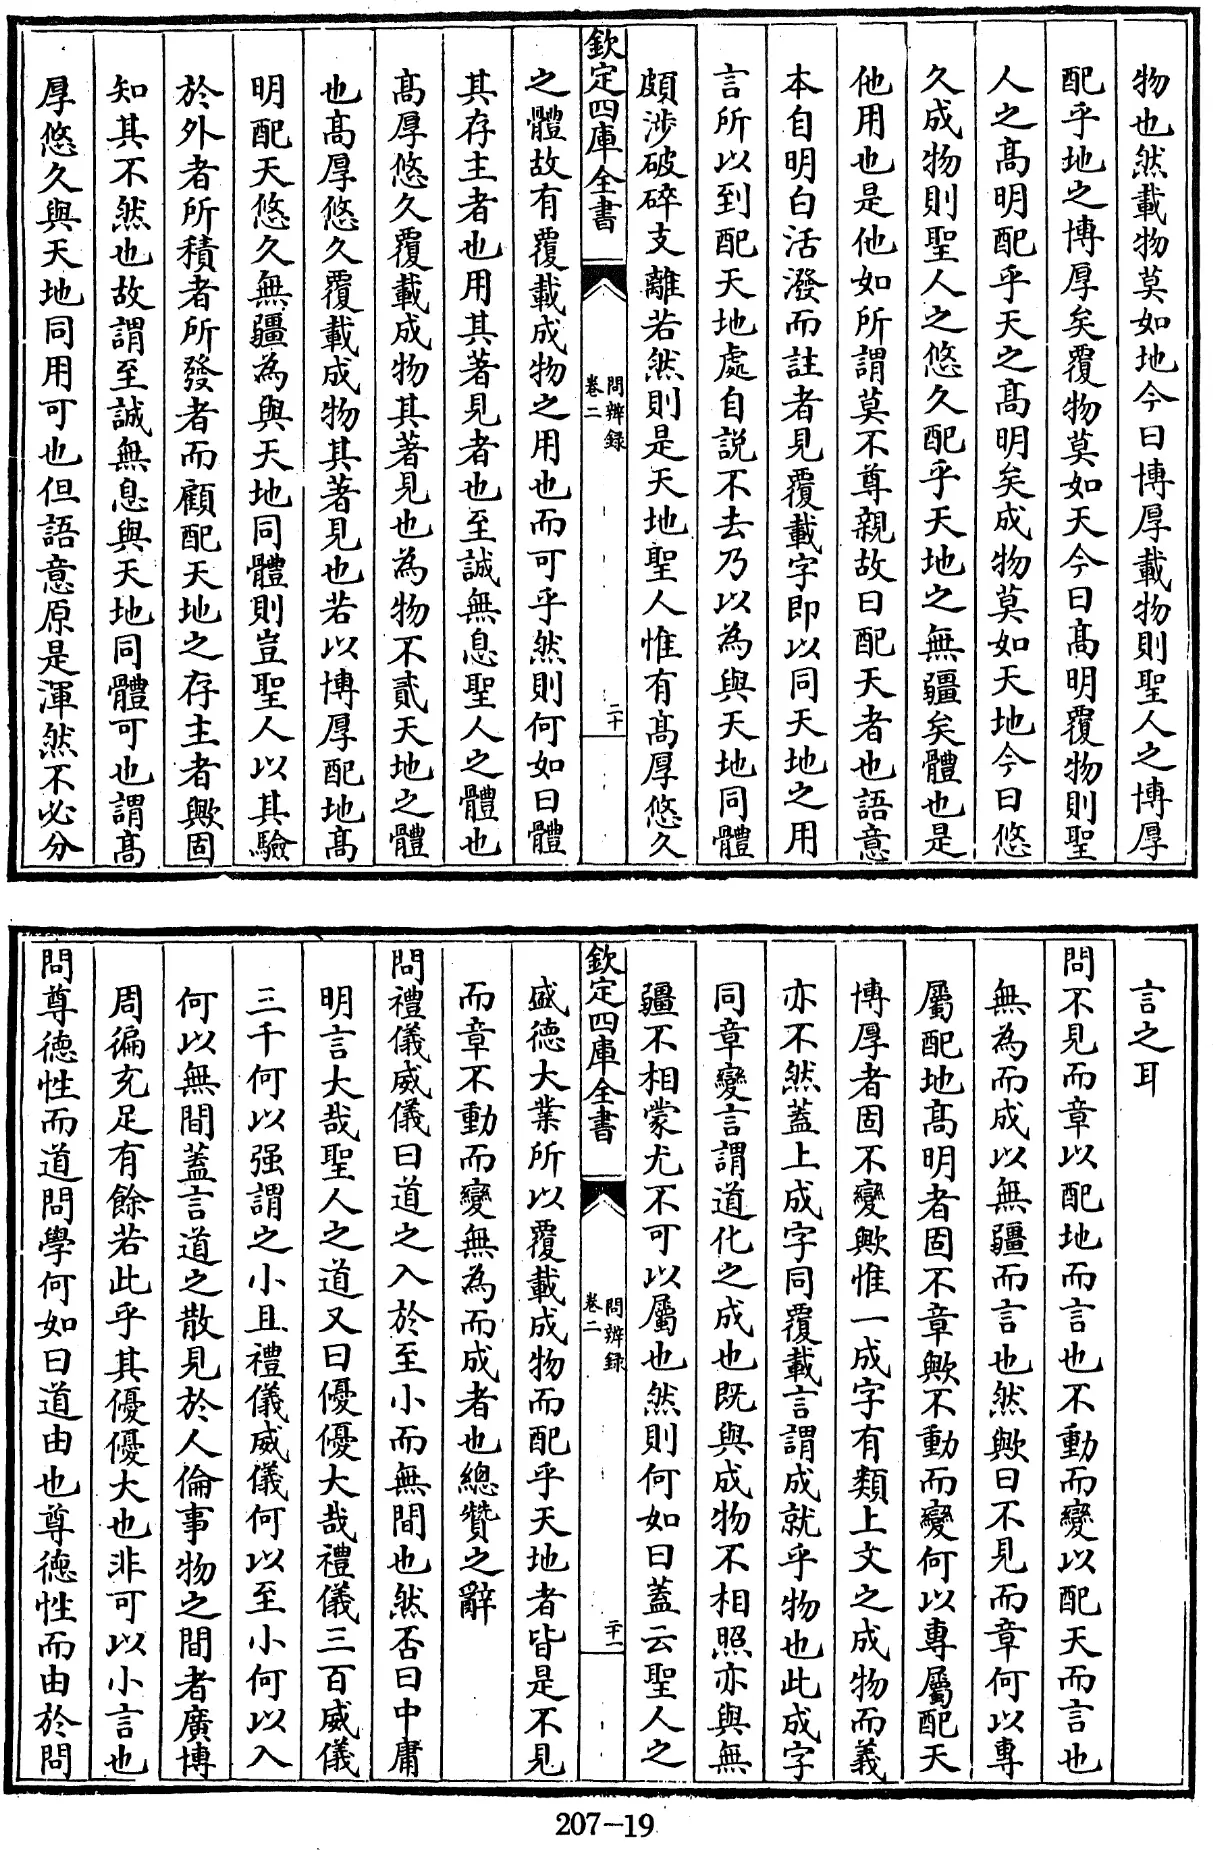 物也然載物莫如地今曰博厚載物則聖人之博厚
配乎地之博厚矣覆物莫如天今曰髙明覆物則聖
人之髙明配乎天之髙明矣成物莫如天地今曰悠
久成物則聖人之悠久配乎天地之無疆矣體也是
他用也是他如所謂莫不尊親故曰配天者也語意
本自明白活潑而註者見覆載字即以同天地之用
言所以到配天地處自説不去乃以為與天地同體
頗涉破碎支離若然則是天地聖人惟有髙厚悠久
欽定四庫全書
問辨録
卷二
二十
之體故有覆載成物之用也而可乎然則何如曰體
其存主者也用其著見者也至誠無息聖人之體也
髙厚悠久覆載成物其著見也為物不貳天地之體
也髙厚悠久覆載成物其著見也若以博厚配地髙
明配天悠久無疆為與天地同體則豈聖人以其驗
於外者所積者所發者而顧配天地之存主者歟固
知其不然也故謂至誠無息與天地同體可也謂髙
厚悠久與天地同用可也但語意原是渾然不必分
言之耳
問不見而章以配地而言也不動而變以配天而言也
無為而成以無疆而言也然歟曰不見而章何以專
屬配地髙明者固不章歟不動而變何以專屬配天
博厚者固不變歟惟一成字有類上文之成物而義
亦不然蓋上成字同覆載言謂成就乎物也此成字
同章變言謂道化之成也既與成物不相照亦與無
疆不相蒙尤不可以屬也然則何如曰蓋云聖人之
欽定四庫全書
問辨録
卷二
二十一
盛德大業所以覆載成物而配乎天地者皆是不見
而章不動而變無為而成者也總贊之辭
問禮儀威儀曰道之入於至小而無間也然否曰中庸
明言大哉聖人之道又曰優優大哉禮儀三百威儀
三千何以强謂之小且禮儀威儀何以至小何以入
何以無間蓋言道之散見於人倫事物之間者廣博
周徧充足有餘若此乎其優優大也非可以小言也
問尊德性而道問學何如曰道由也尊德性而由於問
207-19